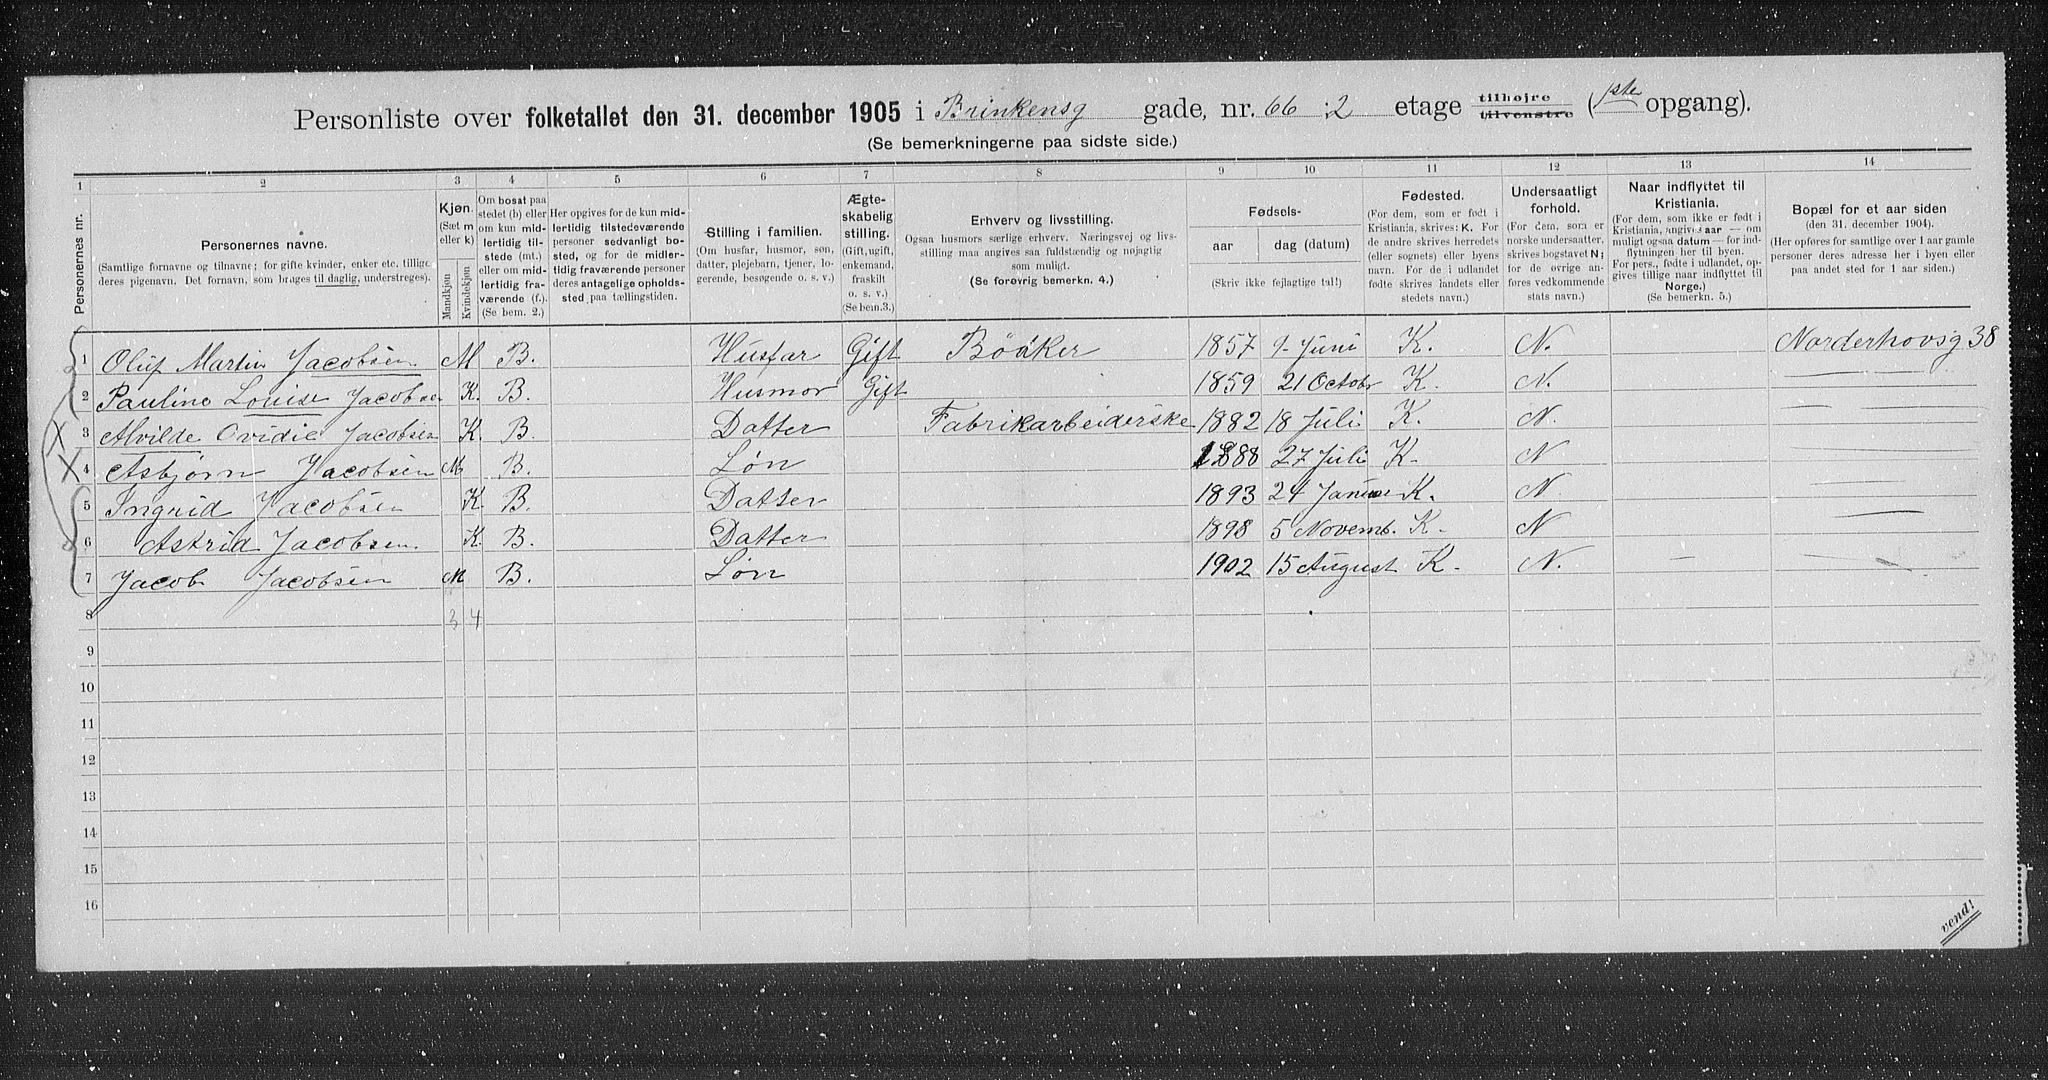 Personliste over folketallet den 31. december 1905 i Brinkensg gade, nr. 66 : 2 etage tilhøjre tilvenstre (1ste opgang).
(Se bemerkningerne paa sidste side.)
1 2 3 4 5 6 7 8 9 10 11 12 13 14
Personernes nr.
Personernes navne.
(Samtlige fornavne og tilnavne; for gifte kvinder, enker etc. tillige
deres pigenavn. Det fornavn, som bruges til daglig, understreges).
Kjøn.
(Sæt m
eller k)
Mandkjøn
Kvindekjøn
Om bosat paa
stedet (b) eller
om kun mid-
lertidig til-
stede (mt.)
eller om mid-
lertidig fra-
værende (f.).
(Se bem. 2.)
Her opgives for de kun mid-
lertidig tilstedeværende
personer sedvanligt bo-
sted, og for de midler-
tidig fraværende personer
deres antagelige opholds-
sted paa tællingstiden.
Stilling i familien.
(Om husfar, husmor, søn,
datter, plejebarn, tjener, lo-
gerende, besøgende o. s. v.)
Ægte-
skabelig
stilling.
(Gift, ugift,
enkemand,
fraskilt
o. s. v.)
(Se bem.3.)
Erhverv og livsstilling.
Ogsaa husmors særlige erhverv. Næringsvej og livs-
stilling maa angives saa fuldstændig og nøjagtig
som muligt.
(Se forøvrig bemerkn. 4.)
Fødsels-
aar dag (datum)
(Skriv ikke fejlagtige tal!)
Fødested.
(For dem, som er født i
Kristiania, skrives: K. For
de andre skrives herredets
(eller sognets) eller byens
navn. For de i udlandet
fødte skrives landets eller
stedets navn.)
Undersaatligt
forhold.
(For dem, som er
norske undersaatter,
skrives bogstavet N;
for de øvrige an-
føres vedkommende
stats navn.)
Naar indflyttet til
Kristiania.
(For dem, som ikke er født i
Kristiania, angives aar — om
muligt ogsaa datum — for ind-
flytningen her til byen.
For pers., fødte i udlandet, op-
gives tillige naar indflyttet til
Norge.)
(Se bemerkn. 5.)
Bopæl for et aar siden
(den 31. december 1904).
(Her opføres for samtlige over 1 aar gamle
personer deres adresse her i byen eller
paa andet sted for 1 aar siden.)
1 Oluf Martin Jacobsen M B. Husfar Gift Bödker 1857 9 Juni K. N. Norderhovsg 38
2 Pauline Louise Jacobsen K. B. Husmor Gift 1859 21 Octobr K. N. —
3 Alvilde Ovidie Jacobsen K. B. Datter Fabrikarbeiderske 1882 18 Juli K. N. —
4 Asbjørn Jacobsen M B. Søn 1888 27 Juli K. N —
5 Ingrid Jacobsen K. B. Datter 1893 24 K. N. —
6 Astrid Jacobsen K. B. Datter 1898 5 Novemb. K. N —
7 Jacob Jacobsen M B. Søn 1902 15 August K. N. — —
8 3 4
9
10
11
12
13
14
15
16
vend!